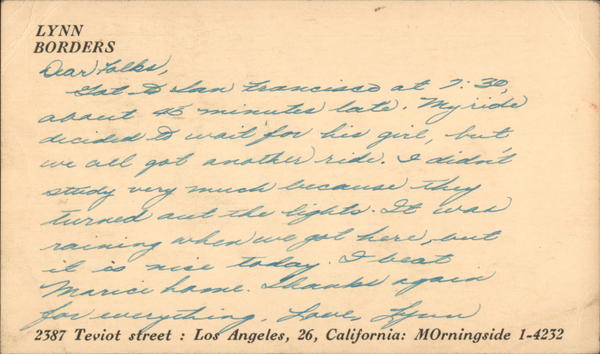 LYNN
BORDERS
Dear Folks,
Got to San Francisco at 7:30,
about 45 minutes late. My ride
decided to wait for his girl, but
we all got another ride. I didn't
study very much because they
turned out the lights. It was
raining when we got here, but
it is nice today. I beat
home. Thanks again
for everything, Love, Lynn
2387 Teviot street : Los Angeles, 26, California: MOrningside 1-4232